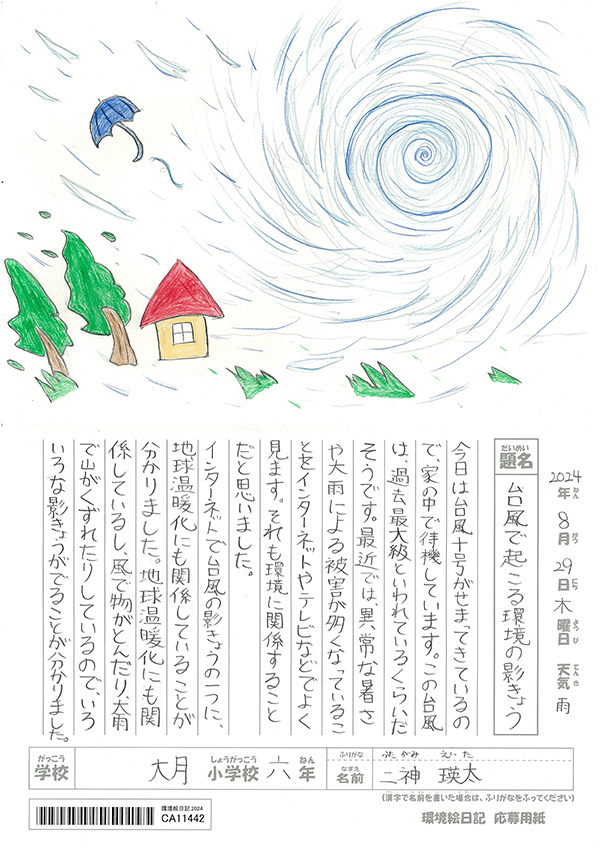 2024年ねん 8月がつ 29日にち 木曜日ようび 天気てんき 雨
題名だいめい 台風で起こる環境の影きょう
今日は台風十号がせまってきているの
で、家の中で待機しています。この台風
は、過去最大級といわれているくらいだ
そうです。最近では異常な暑さ
や大雨による被害が多くなっているこ
とをインターネットやテレビなどでよく
見ます。それも環境に関係すること
だと思いました。
インターネットで台風の影きょうの一つに、
地球温暖化にも関係していることが
分かりました。地球温暖化にも関
係しているし、風で物がとんだり、大雨
で山がくずれたりしているので、いろ
いろな影きょうがでることが分かりました。
がっこう 学校 大月 しょうがっこう 小学校 六 ねん 年
ふりがな ふたがみ えいた
なまえ 名前 二神 瑛太
(漢字で名前を書いた場合は、ふりがなをふってください)
環境絵日記2024
CA11442
環境絵日記 応募用紙